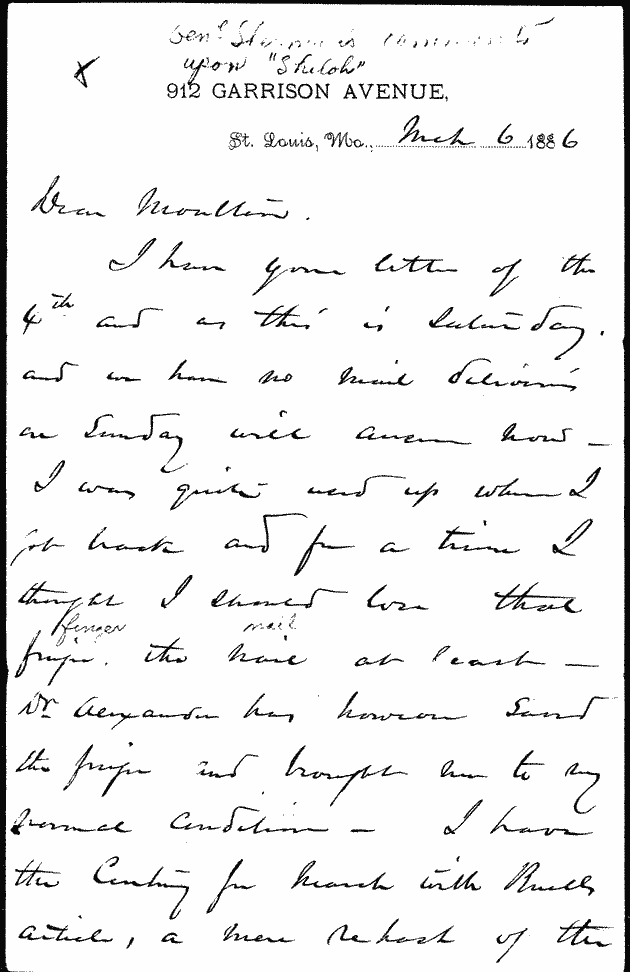 Genl Sherman's comments
upon "Shiloh"
X
912 GARRISON AVENUE,
St. Louis, Mo., Mch 6 1886
Dear Moulton.
I have your letter of the
4th and as this is Saturday.
and we have no mail deliveries
on Sunday will answer now —
I was quite used up when I
got back and for a time I
thought I should lose that
finger nail
finger. the nail at least —
Dr Alexander has however saved
the finger and brought me to my
normal condition — I have
the Century for March with Buells
article, a mere rehash of the